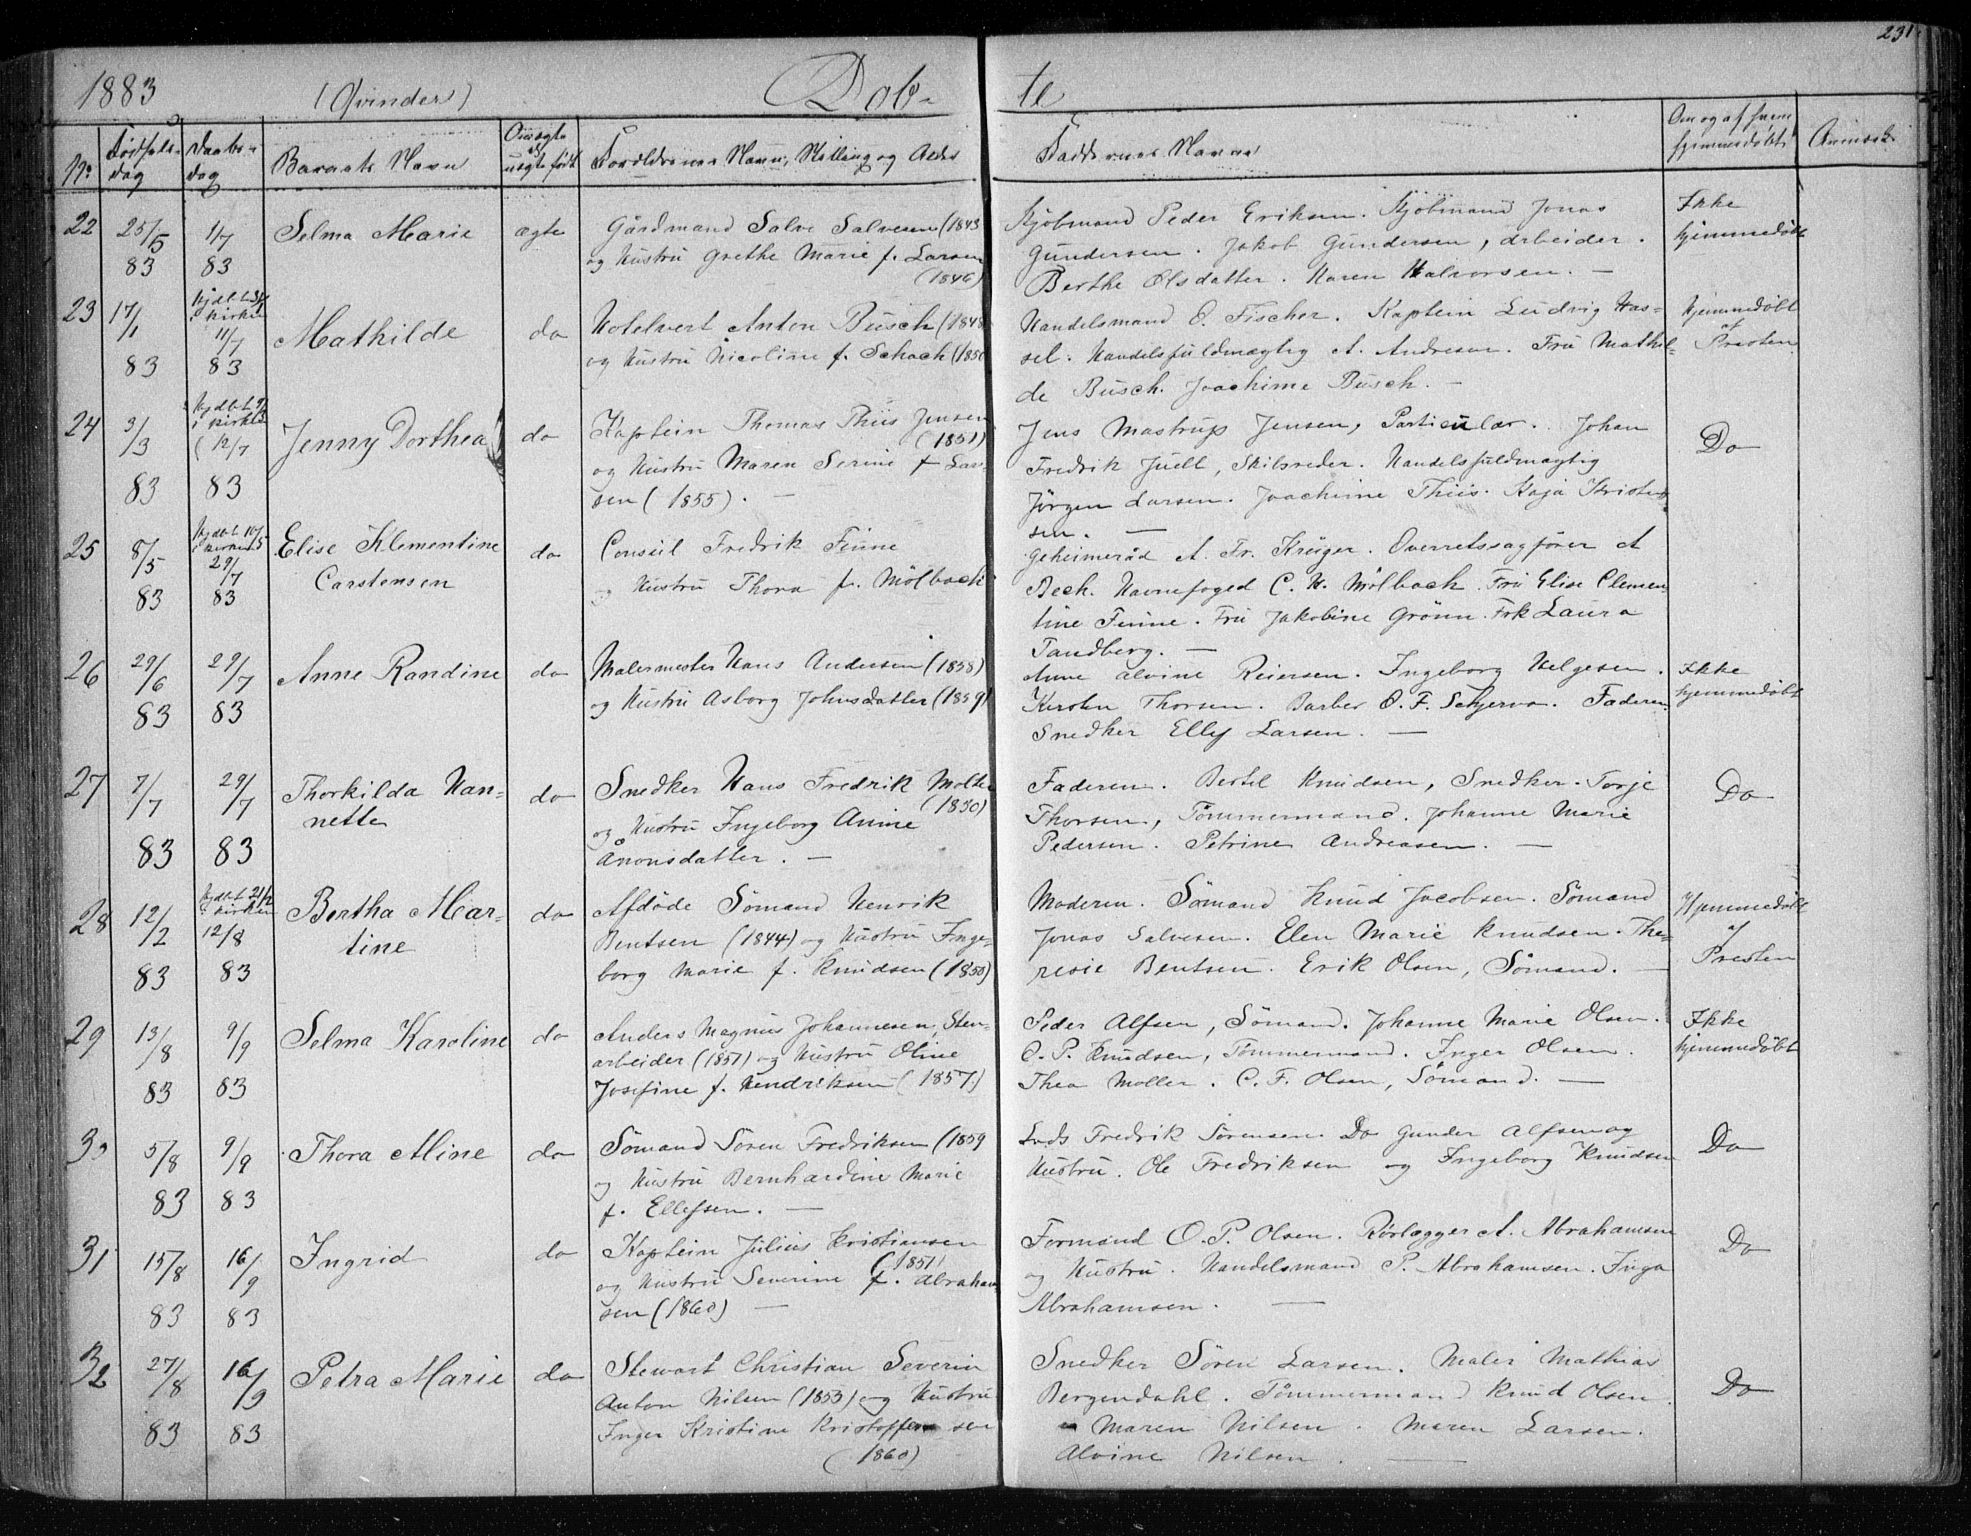 231.
1883 (Qvinder) Döb- te
No Födsels- dag Daabs- dag Barnets Navn Om ægte el uægte födt Forældrenes Navn, Stilling og Alder Faddernes Navne Om og af hvem hjemmedöbt Anmærk.
22 25/5 83 1/7 83 Selma Marie ægte
Gårdmand Salve Salvesen (1843
og Hustru Grethe Marie f. Larsen
(1846)
Skjöbmand Peder Eriksen. Skjöbmand Jonas
Gundersen. Jakob Gundersen, Arbeider.
Berthe Olsdatter. Karen Halvorsen. —
Ikke
hjemmedöbt
23 17/1 83 Hjdbt 3/1 i kirken 11/7 83 Mathilde do
Hotelvert Anton Busch (1848
og Hustru Nicoline f. Schach (1850
Handelsmand O. Fischer. Kaptein Ludvig Has-
sel. Handelsfuldmægtig A. Andresen. Fru Mathil-
de Busch. Joachime Busch. —
Hjemmedöbt
af
Presten
24 3/3 83 Hjdbt i kirken 12/7 83 Jenny Dorthea do
Kaptein Thomas Thiis Jensen
(1851)
og Hustru Maren Serine f Lar-
sen (1855). —
Jens Mastrup Jensen, Particulær. Johan
Fredrik Juell, Skibsreder. Handelsfuldmægtig
Jörgen Larsen. Joachime Thiis. Kaja Kristen-
sen. —
Do
25 8/5 83 Hjdbt 10/5 i kirken 29/7 83 Elise Klementine
Carstensen do
Consul Fredrik Finne
og Hustru Thora f. Mölbach
Geheimeråd A. Fr. Krüger. Overretssagförer A
Bech. Havnefoged C. H. Mölbach. Fru Elise Clemen-
tine Finne. Fru Jakobine Grönn. Frk Laura
Tandberg. —
26 29/6 83 29/7 83 Anne Randine do
Malermester Hans Andersen (1858)
og Hustru Asborg Johnsdatter (1859)
Anne Alvine Reiersen. Ingeborg Helgesen.
Kirsten Thorsen. Barber O. F. Schjerva. Faderen
Snedker Ellef Larsen. —
Ikke
hjemmedöbt
27 7/7 83 29/7 83 Thorkilda Nan-
nette do
Snedker Hans Fredrik Molte
(1850)
og Hustru Ingeborg Anine
Ånonsdatter. —
Faderen. Bertel Knudsen, Snedker. Torje
Thorsen, Tömmermand. Johanne Marie
Pedersen. Petrine Andreasen. —
Do
28 12/2 83 Hjdbt 21/2 i kirken 12/8 83 Bertha Mar-
tine do
Afdöde Sömand Henrik
Bentsen (1844) og Hustru Inge-
borg Marie f. Knudsen (1850)
Moderen. Sömand Knud Jacobsen. Sömand
Jonas Salvesen. Elen Marie Knudsen. The-
resie Bentsen. Erik Olsen, Sömand. —
Hjemmedöbt
af
Presten
29 13/8 83 9/9 83 Selma Karoline do
Anders Magnus Johannesen, Sten-
arbeider (1851) og Hustru Oline
Josefine f. Hendriksen (1857)
Peder Alfsen, Sömand. Johanne Marie Olsen.
O. P. Knudsen, Tömmermand. Inger Olsen.
Thea Moller. C. F. Olsen, Sömand. —
Ikke
hjemmedöbt
30 5/8 83 9/9 83 Thora Aline do
Sömand Sören Fredriksen (1859
og Hustru Bernhardine Marie
f. Ellefsen. —
Lods Fredrik Sörensen. Do Gunder Alfsen og
Hustru. Ole Fredriksen og Ingeborg Knudsen
Do
31 15/8 83 16/9 83 Ingrid do
Kaptein Julius Kristiansen
(1851)
og Hustru Severine f. Abraham-
sen (1860) —
Formand O. P. Olsen. Rörlægger A. Abrahamsen
og Hustru. Handelsmand P. Abrahamsen. Inga
Abrahamsen. —
Do
32 27/8 83 16/9 83 Petra Marie do
Stewart Christian Severin
Anton Nilsen (1853) og Hustru
Inger Kristine Kristoffersen
(1860)
Snedker Sören Larsen. Maler Mathias
Bergendahl. Tömmermand Knud Olsen.
Maren Nilsen. Maren Larsen.
Alvine Nilsen. —
Do